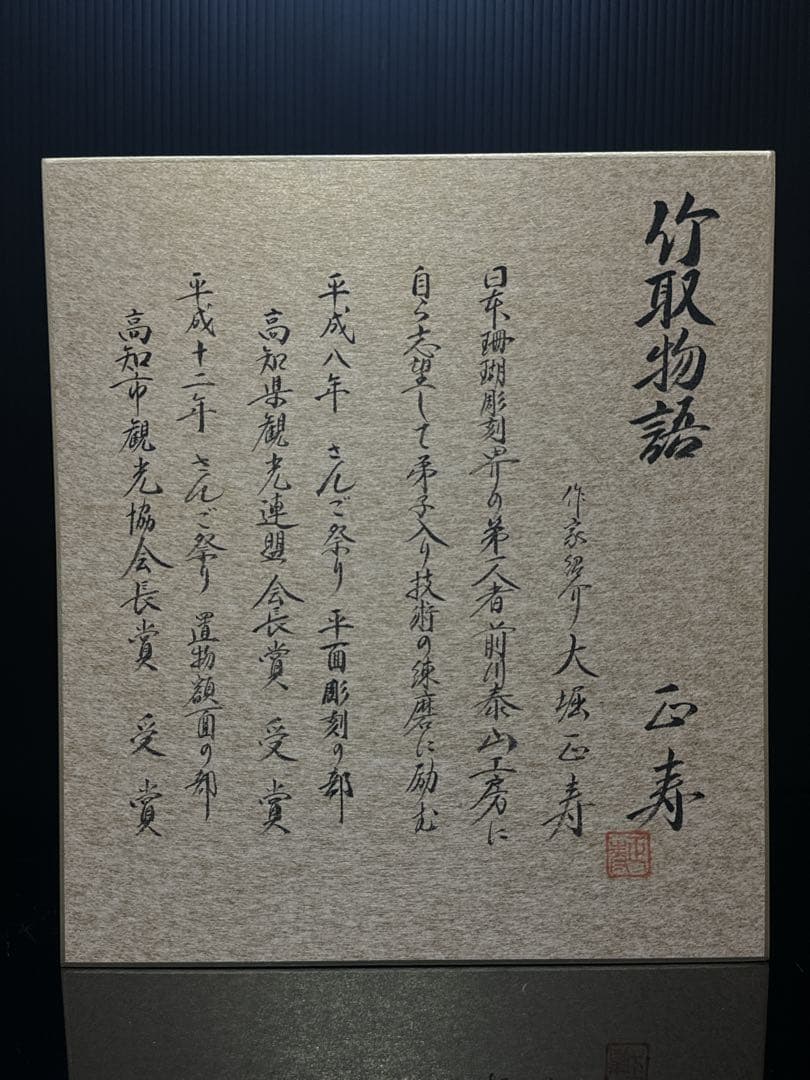 竹取物語 正寿
作家紹介 大堀正寿
日本珊瑚彫刻界の第一人者前川泰山工房に
自ら志望して弟子入り技術の練磨に励む
平成八年 さんご祭り 平面彫刻の部
高知県観光連盟会長賞 受賞
平成十二年 さんご祭り 置物額面の部
高知市観光協会長賞 受賞
正寿